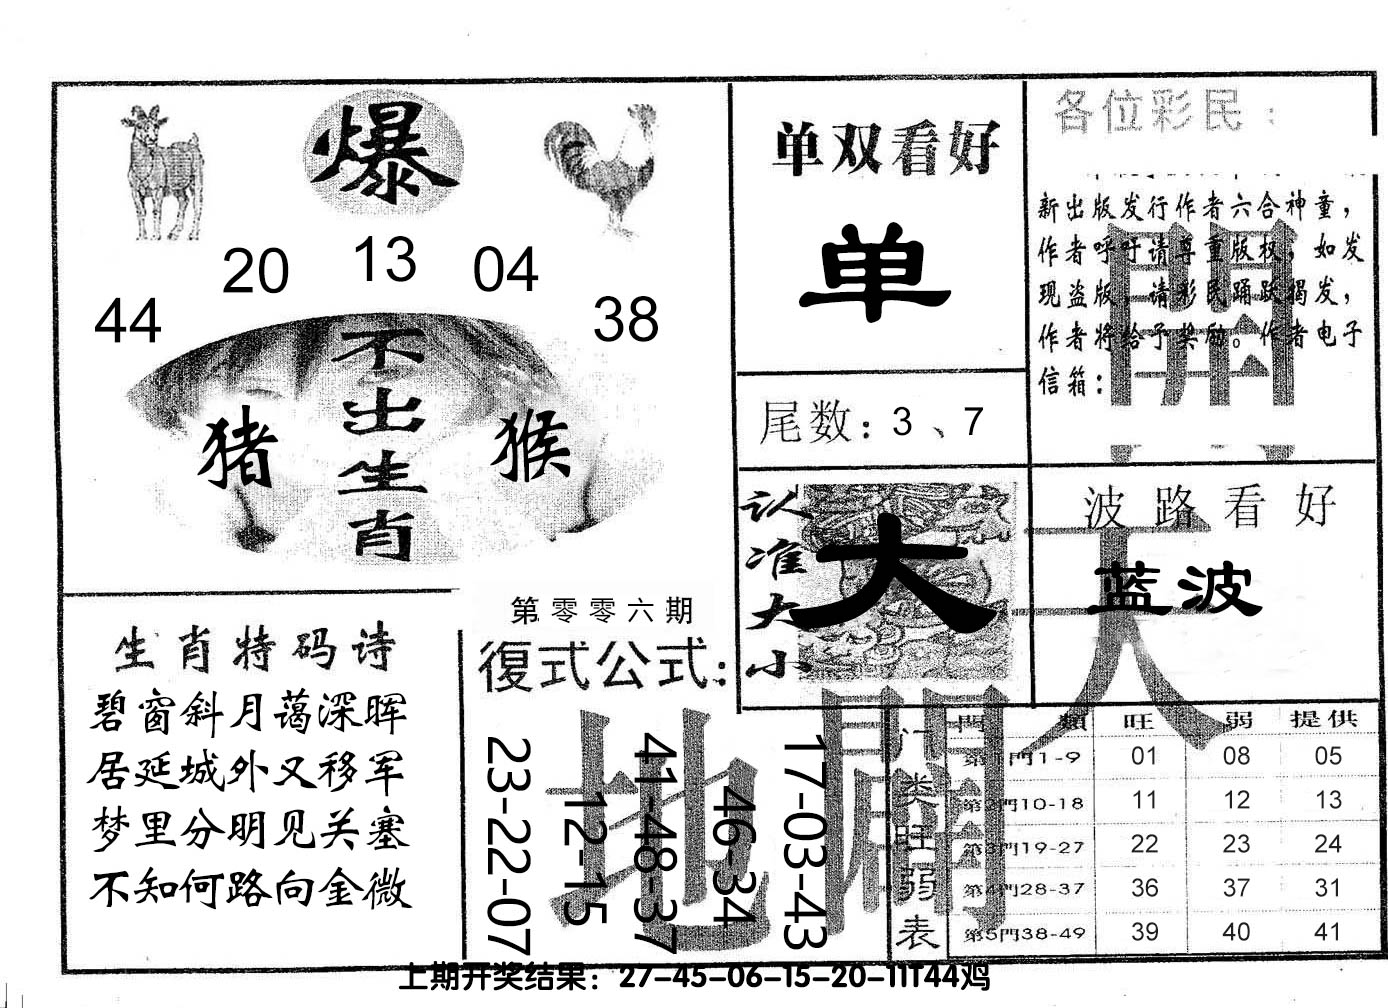 爆
44 20 13 04 38
不出生肖
猪 猴
单双看好
单
尾数：3、7
认准大小
大
各位彩民：
新出版发行作者六合神童，
作者呼吁请尊重版权，如发
现盗版，请彩民踊跃揭发，
作者将给予奖励。作者电子
信箱：
波路看好
蓝波
生肖特码诗
碧窗斜月蔼深晖
居延城外又移军
梦里分明见关塞
不知何路向金微
第零零六期
復式公式：
23-22-07
12-15
41-48-37
46-34
17-03-43
天
地
開
門类旺弱表
門類 旺 弱 提供
第1門1-9 01 08 05
第2門10-18 11 12 13
第3門19-27 22 23 24
第4門28-37 36 37 31
第5門38-49 39 40 41
上期开奖结果：27-45-06-15-20-11T44鸡